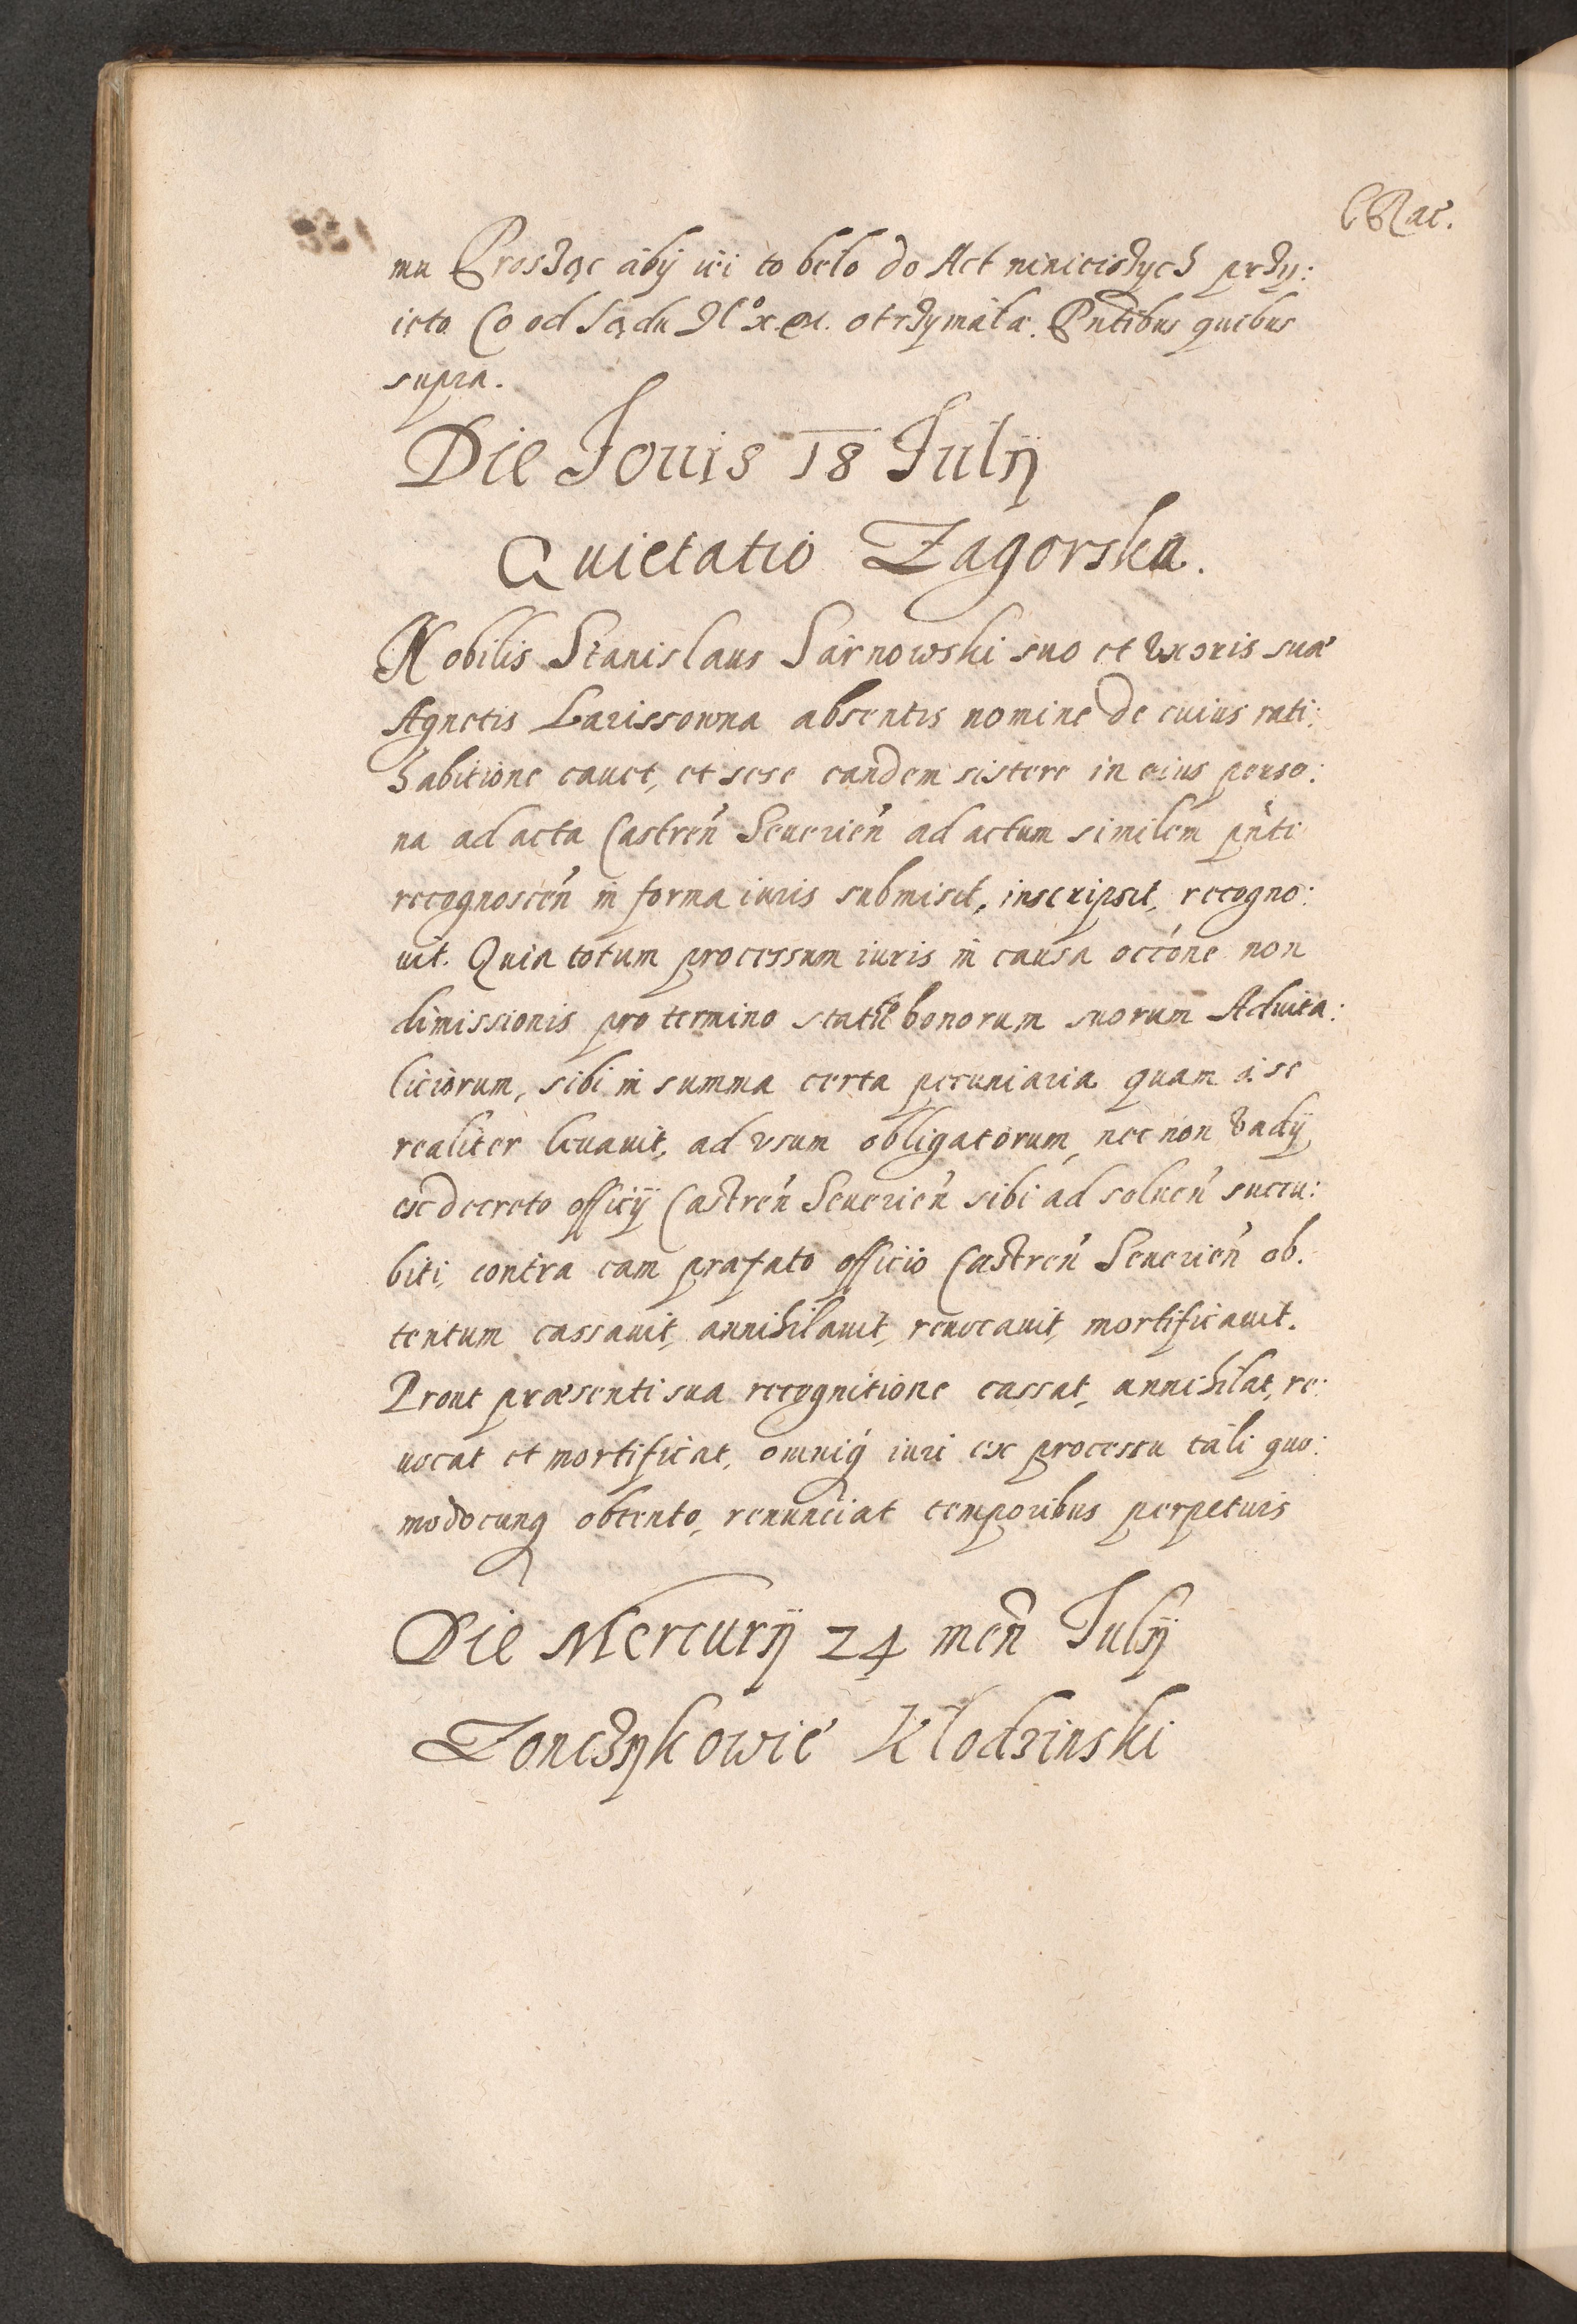 mu Prosząc aby iei to beło do Act ninieiszych przy:
ięto Co od Sądu otrzymała. Pntibus quibus
supra.
Die Jouis 18 Julij
Quietatio Zagorska.
Nobilis Stanislaus Sarnowski suo et Uxoris suæ
Agnetis Larissowna absentis nomine de cuius rati:
habitione cauet, et sese eandem sistere in eius perso:
na ad acta Castren Seuerien ad actum similem pnti
recognoscen in forma iuris submisit, inscripsit, recogno:
uit. Quia totum processum iuris in causa occone non
dimissionis pro termino bonorum suorum Aduita:
liciorum, sibi in summa certa pecuniaria quam a se
realiter leuauit, ad vsum obligatorum, nec non Vadij
ex decreto officij Castren Seuerien sibi ad soluen succu:
biti, contra eam præfato officio Castren Seuerien ob.
tentum cassauit, annihilauit, reuocauit, mortificauit.
Prout præsenti sua recognitione cassat, annihilat, re:
uocat et mortificat, omniq iuri ex processu tali quo:
modocunq obtento, renunciat temporibus perpetuis
Die Mercurij 24 men Julij
Zonczykowic Kłodzinski